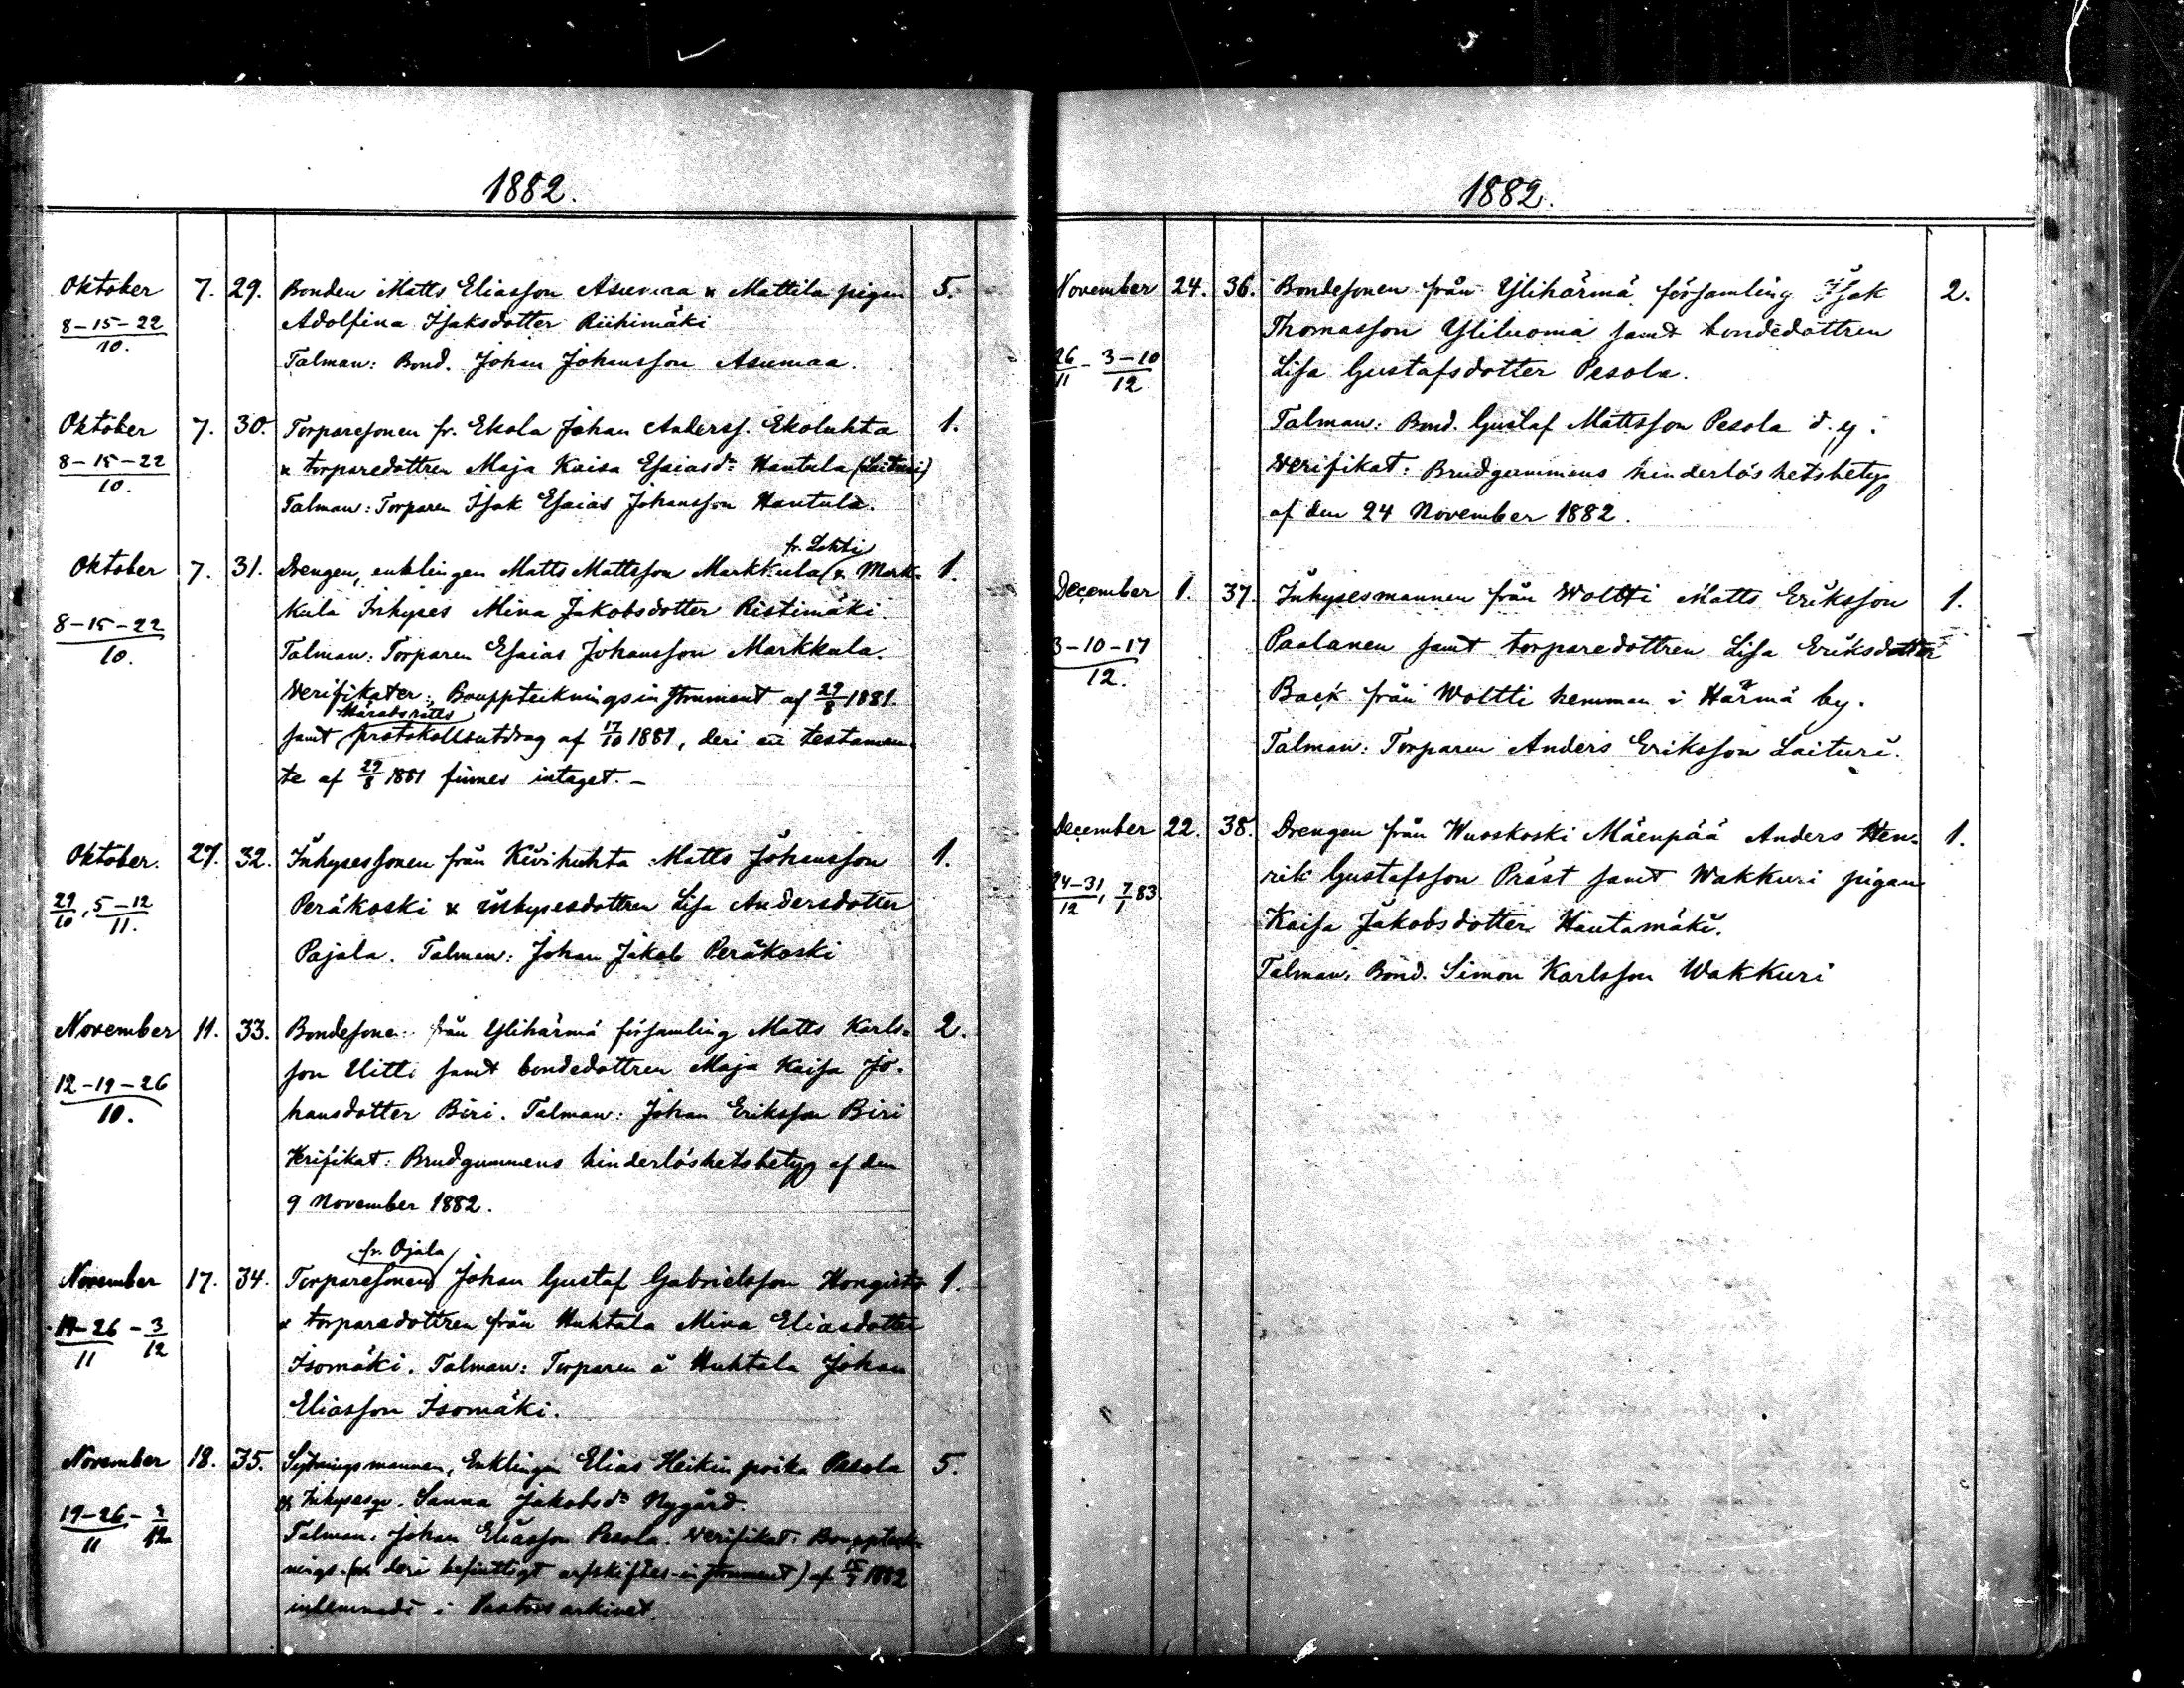 1882.
Oktober 7. 29. Bonden Matts Eliasson Asumaa & Mattila pigan 5.
8-15-22
10.
Adolfina Isaksdotter Riihimäki
Talman: Bond. Johan Johansson Asumaa.
Oktober 7. 30. Torparesonen fr. Ekola Johan Anderss. Ekoluhta 1.
8-15-22
10.
& torparedottren Maja Kaisa Esaiasdr Hantula (Laituri)
Talman: Torparen Isak Esaias Johansson Hantula.
fr. Lahti
Oktober 7. 31. Drengen, enklingen Matts Mattsson Markkula & Mark- 1.
8-15-22
10.
kula Inhyses Mina Jakobsdotter Ristimäki
Talman: Torparen Esaias Johansson Markkula.
Verifikater: Bouppteckningsinstrument af 29/8 1881.
Häradsrätts
samt protokollsutdrag af 17/10 1881, deri ett testamen-
te af 29/8 1881 finnes intaget. -
Oktober. 27. 32. Inhysessonen från Kivihuhta Matts Johansson 1.
29/10, 5-12
11.
Peräkoski & inhysesdottren Lisa Andersdotter
Pajala. Talman: Johan Jakob Peräkoski
November 11. 33. Bondesonen från Ylihärmä församling Matts Karls- 2.
12-19-26
10.
son Uitti samt bondedottren Maja Kaisa Jo-
hansdotter Biri. Talman: Johan Eriksson Biri
Verifikat: Brudgummens hinderlöshetsbetyg af den
9 November 1882.
fr. Ojala
November 17. 34. Torparesonen Johan Gustaf Gabrielsson Hongisto 1.
19-26 - 3
11 12
& torparedottren från Huhtala Mina Eliasdotter
Isomäki. Talman: Torparen å Huhtala Johan
Eliasson Isomäki.
November 18. 35. Sytningsmannen, Enklingen Elias Heikin poika Pesola 5.
19-26 - 3
11 12
& Inhysesqv. Sanna Jakobsdr Nygård.
Talman. Johan Eliasson Pesola. Verifikat: Bouppteck-
nings- (& deri befintligt arfskiftes-instrument) af 1882
inlemnadt i Pastorsarkivet.
1882.
November 24. 36. Bondesonen från Ylihärmä församling Isak 2.
26 - 3-10
11 12
Thomasson Yliluoma samt bondedottren
Lisa Gustafsdotter Pesola.
Talman: Bond. Gustaf Mattsson Pesola d. y.
Verifikat: Brudgummens hinderlöshetsbetyg
af den 24 November 1882.
December 1. 37. Inhysesmannen från Woltti Matts Eriksson 1.
3-10-17
12.
Paalanen samt torparedottren Lisa Eriksdotter
Back från Woltti hemman i Härmä by.
Talman: Torparen Anders Eriksson Laituri.
December 22. 38. Drengen från Wuoskoski Mäenpää Anders Hen- 1.
24-31, 7/1 83
12
rik Gustafsson Präst samt Wakkuri pigan
Kaisa Jakobsdotter Hautamäki.
Talman. Bond. Simon Karlsson Wakkuri